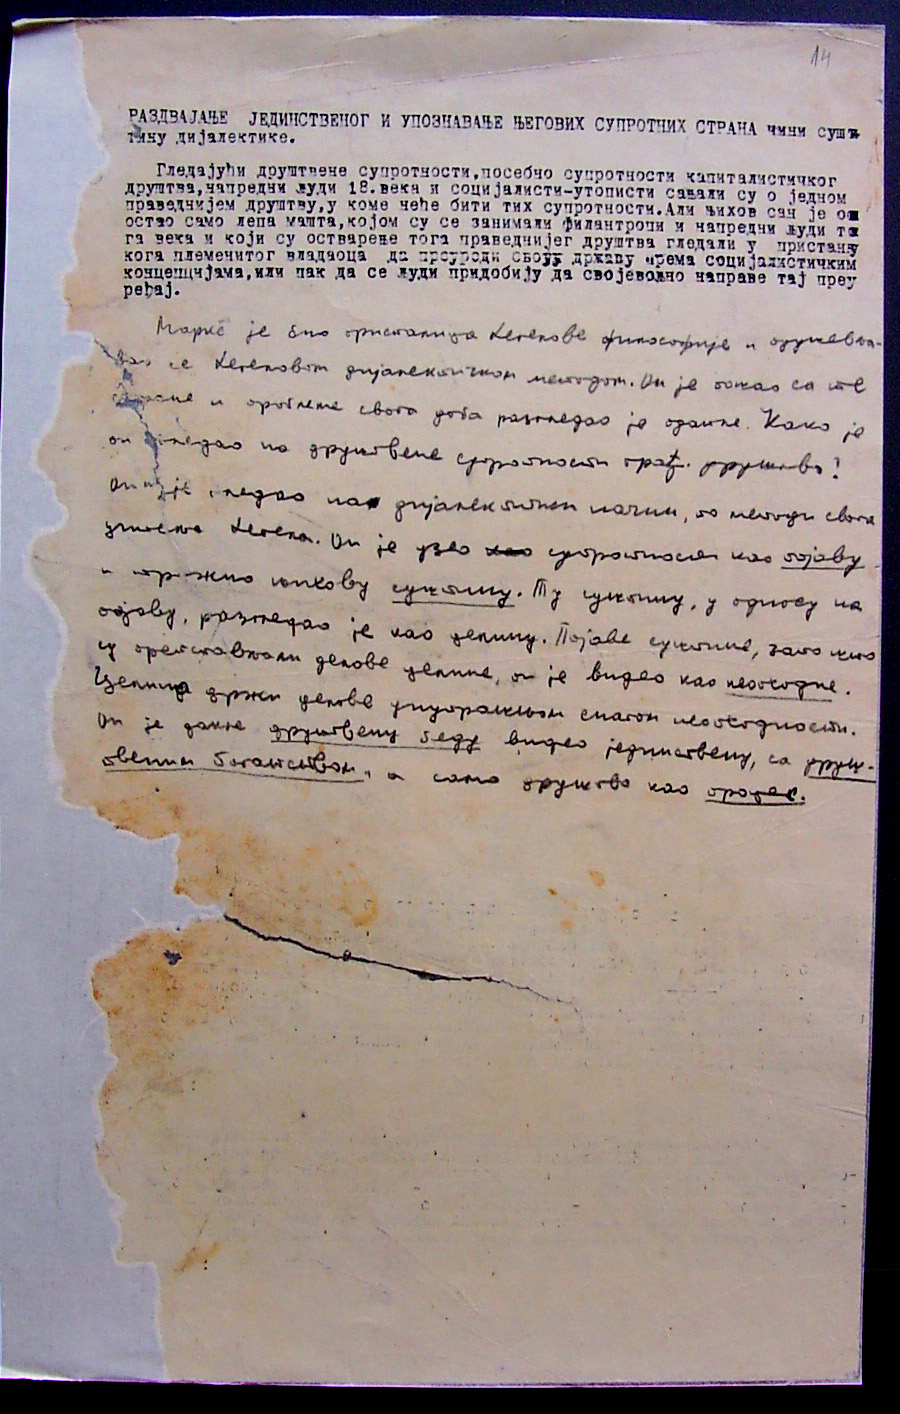 14
РАЗДВАЈАЊЕ ЈЕДИНСТВЕНОГ И УПОЗНАВАЊЕ ЊЕГОВИХ СУПРОТНИХ СТРАНА чини сушт
тину дијалектике.
Гледајући друштвене супротности,посебно супротности капиталистичког
друштва,напредни људи 18.века и социјалисти-утописти сањали су о једном
праведнијем друштву,у коме неће бити тих супротности.Али њихов сан је ос
остао само лепа машта,којом су се занимали филантропи и напредни људи то
га века и који су остварење тога праведнијег друштва гледали у пристанку
кога племенитог владаоца да преуреди своју државу према социјалистичким
концепцијама,или пак да се људи придобију да својевољно направе тај преу
ређај.
Маркс је био присталица Хегелове философије и одушевља-
вао се Хегеловом дијалектичком методом. Он је пошао са те
стране и проблеме свога доба разгледао је одатле. Како је
он гледао на друштвене супротности грађ. друштва?
Он је гледао на дијалектички начин, по методи свога
учитеља Хегела. Он је узео супротности као појаву
и тражио њихову суштину. Ту суштину, у односу на
појаву, разгледао је као целину. Појаве суштине, зато што
су претстављали делове целине, он је видео као неопходне.
Целина држи делове унутрашњом снагом неопходности.
Он је дакле друштвену беду видео јединствену, са друш-
твеним богатством, а само друштво као процес.